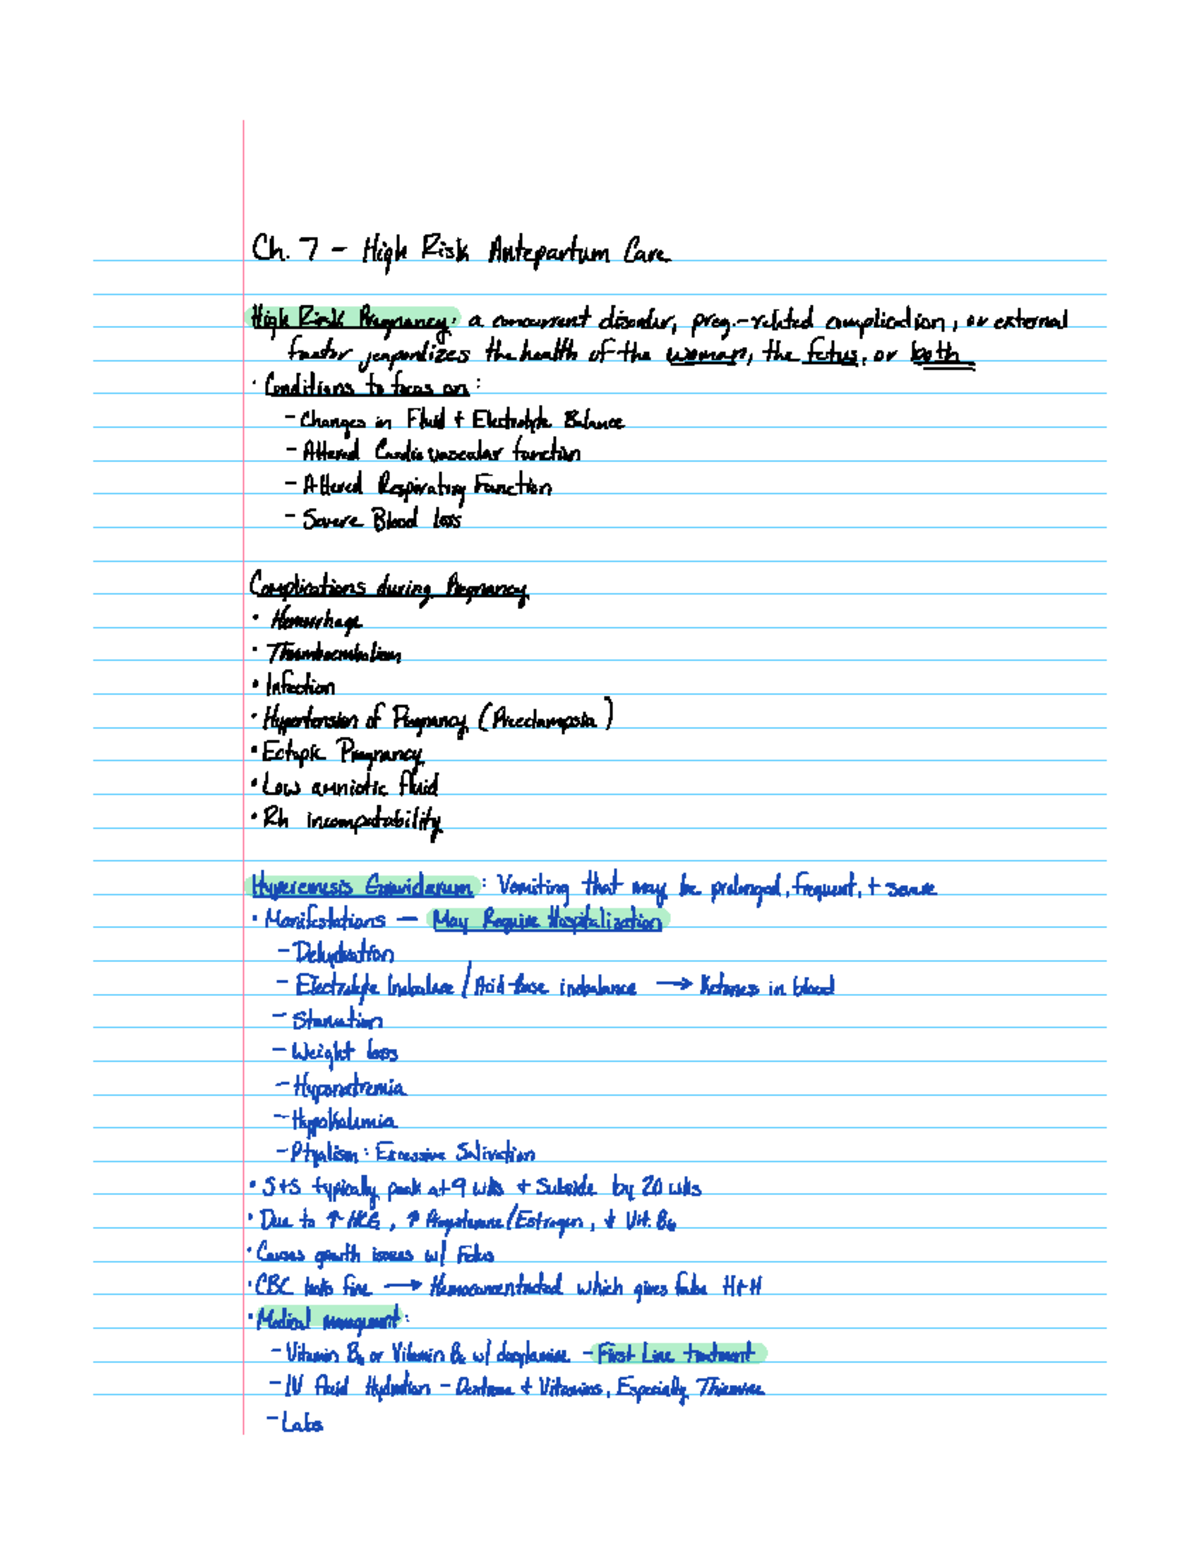 Ch. 7 - High Risk Antepartum Care
High Risk Pregnancy: a concurrent disorder, preg.-related complication, or external
factor jeopardizes the health of the woman, the fetus, or both
· Conditions to focus on:
- Changes in Fluid + Electrolyte Balance
- Altered Cardiovascular function
- Altered Respiratory Function
- Severe Blood loss
Complications during Pregnancy
· Hemorrhage
· Thromboembolism
· Infection
· Hypertension of Pregnancy (Preeclampsia)
· Ectopic Pregnancy
· Low amniotic fluid
· Rh incompatability
Hyperemesis Gravidarum: Vomiting that may be prolonged, frequent, + severe
· Manifestations — May Require Hospitalization
- Dehydration
- Electrolyte Imbalance / Acid-Base imbalance → Ketones in blood
- Starvation
- Weight loss
- Hyponatremia
- Hypokalemia
- Ptyalism: Excessive Salivation
· S+S typically peak at 9 wks + Subside by 20 wks
· Due to ↑ HCG, ↑ Progesterone/Estrogen, ↓ Vit. B6
· Causes growth issues w/ Fetus
· CBC looks fine → Hemoconcentrated which gives false H+H
· Medical management:
- Vitamin B6 or Vitamin B6 w/ doxylamine - First Line treatment
- IV Fluid Hydration - Dextrose + Vitamins, Especially Thiamine
- Labs